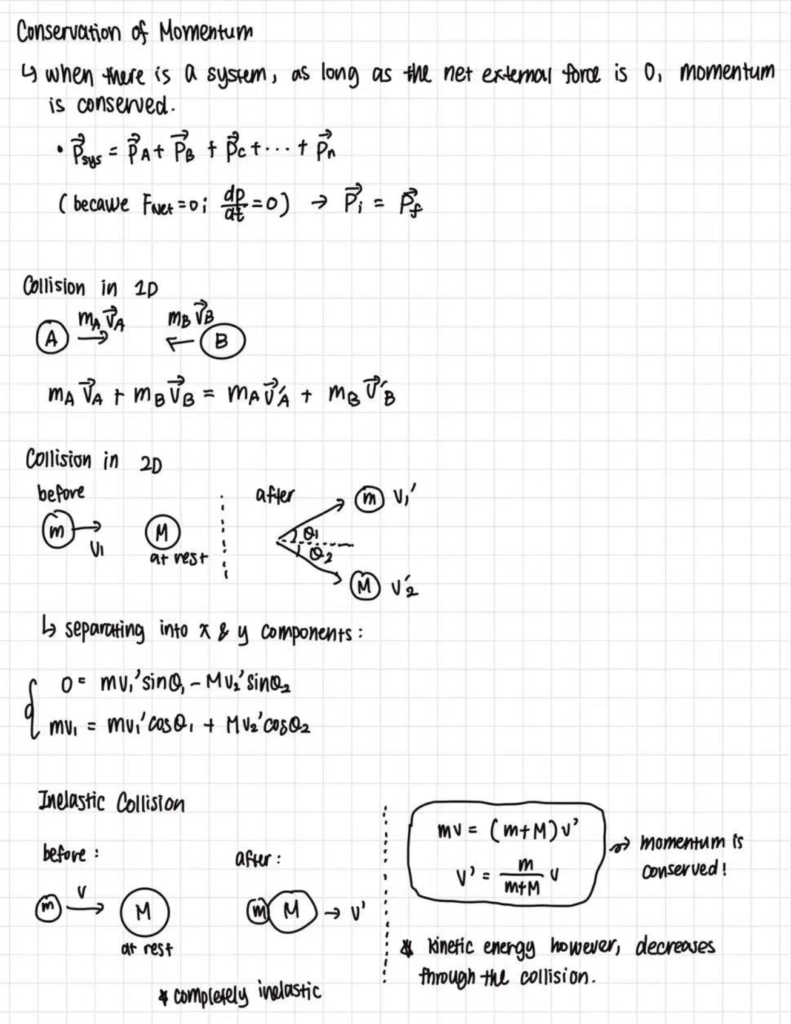 Conservation of Momentum
↳ when there is a system, as long as the net external force is 0, momentum
is conserved.
• P⃗sys = P⃗A + P⃗B + P⃗C + ... + P⃗n
( because FNet = 0; dp/dt = 0 ) → P⃗i = P⃗f
Collision in 1D
mA V⃗A mB V⃗B
A B
mA V⃗A + mB V⃗B = mA V⃗'A + mB V⃗'B
Collision in 2D
before after m V₁'
m M θ₁
V₁ at rest θ₂
M V₂'
↳ separating into x & y components:
0 = mv₁'sinθ₁ - Mv₂'sinθ₂
mv₁ = mv₁'cosθ₁ + Mv₂'cosθ₂
Inelastic Collision
before: after:
m V M m M → V'
at rest
* completely inelastic
mv = (m+M)v'
v' = m/(m+M) v
→ momentum is
conserved!
* kinetic energy however, decreases
through the collision.